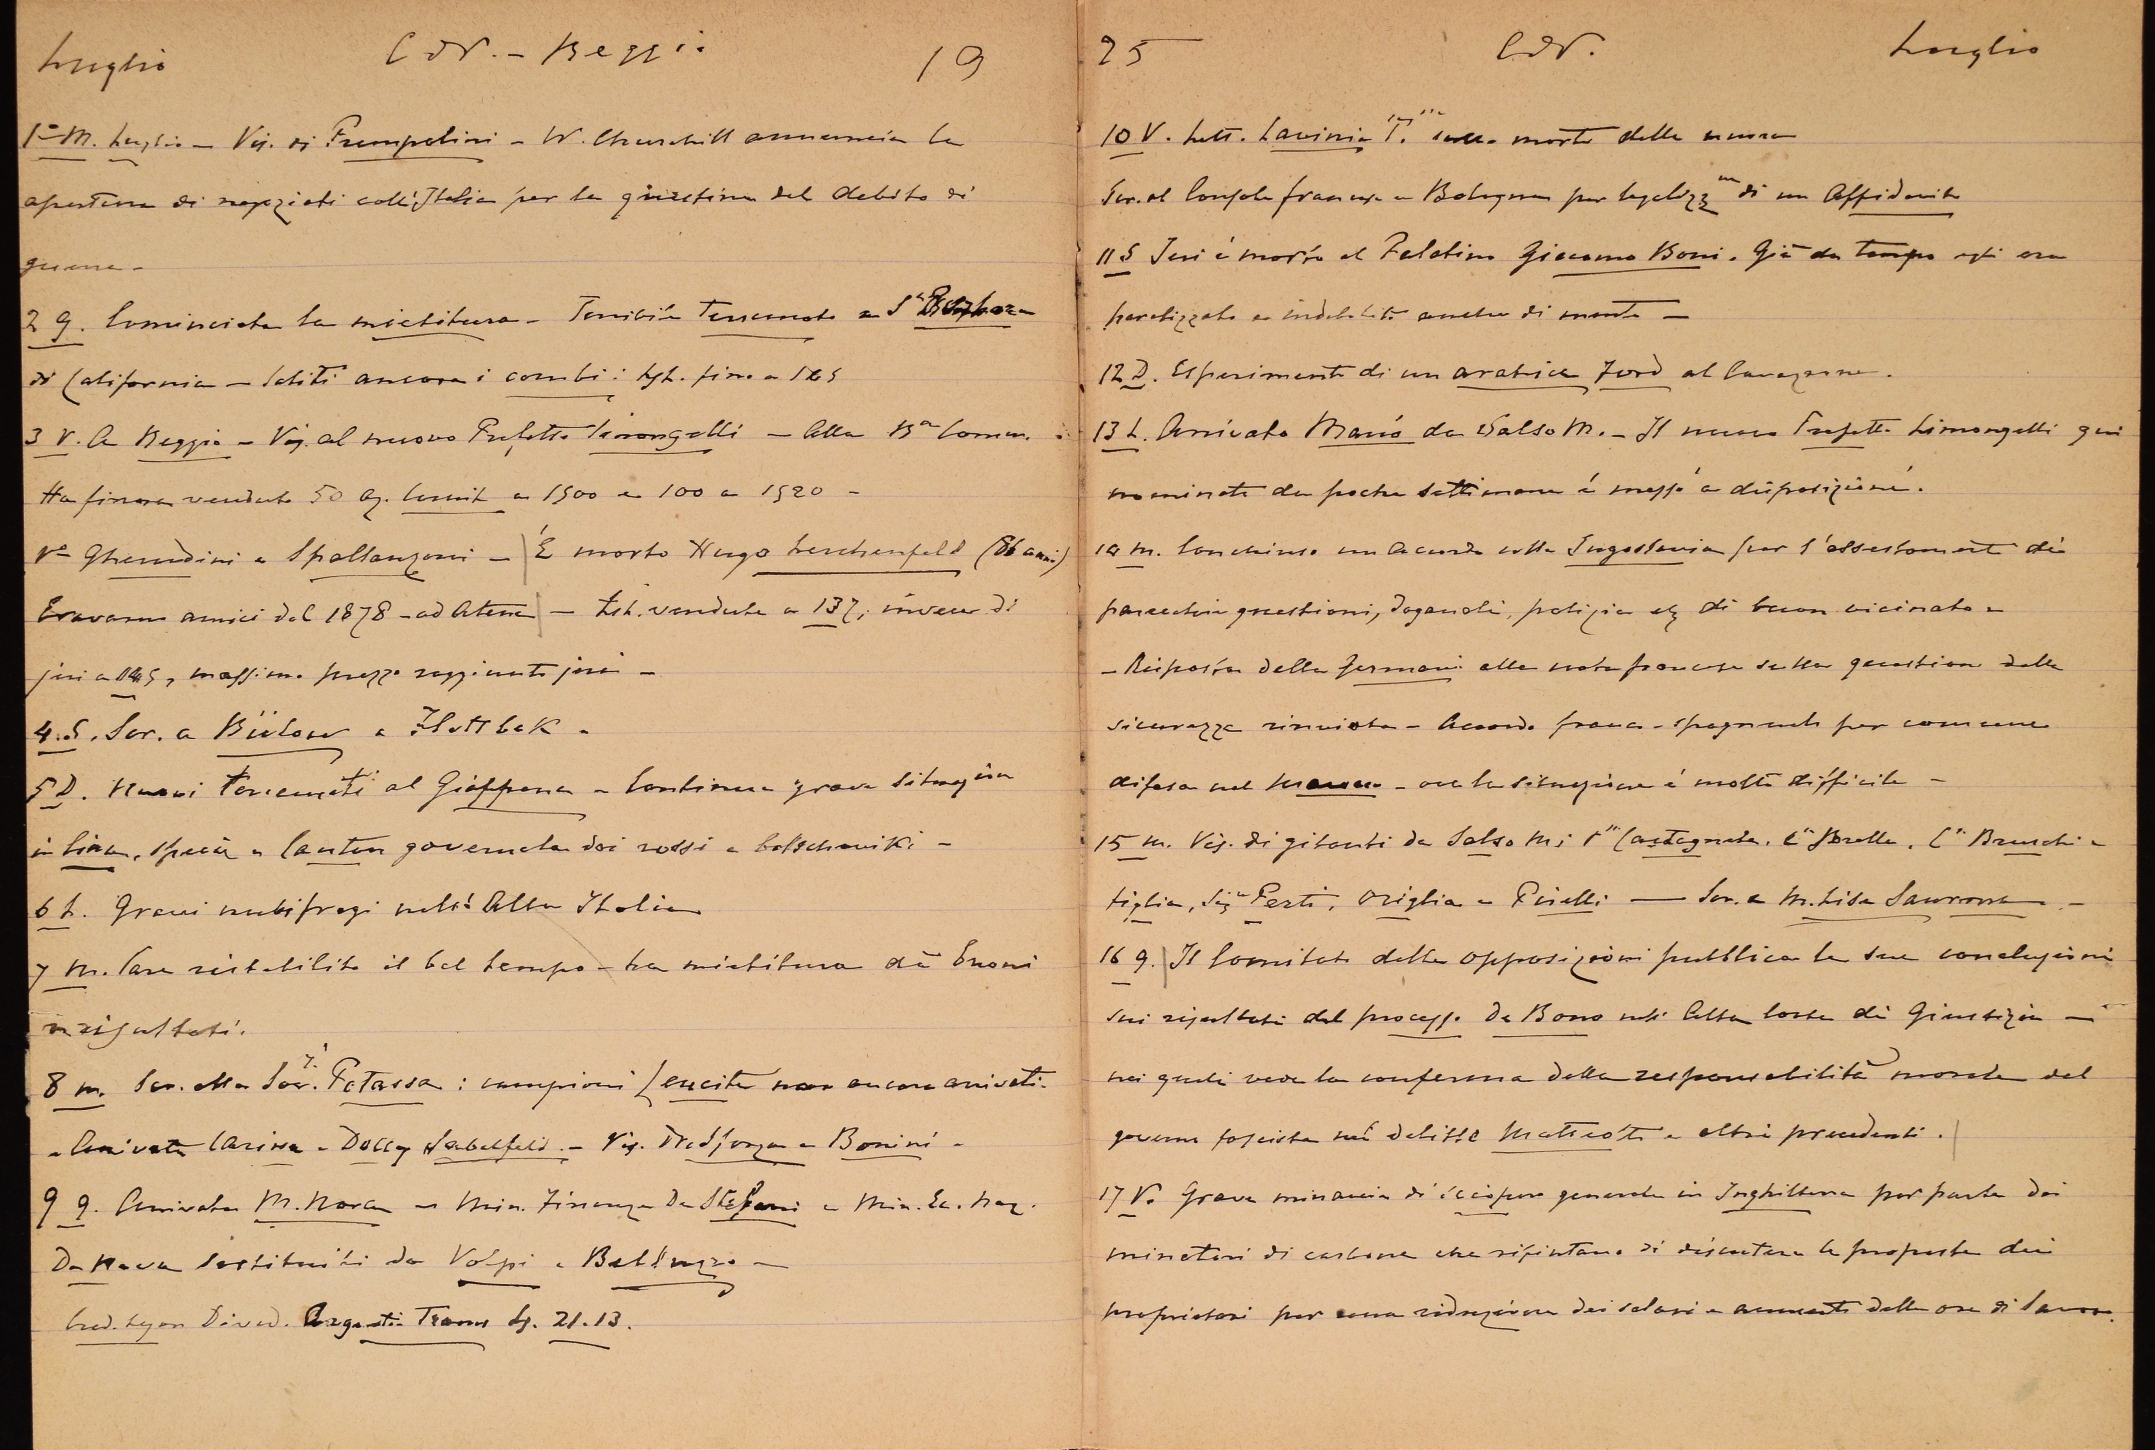 Luglio CdV. - Reggio 19
1º M. Luglio - Vis. di Frumpolini - W. Churchill annuncia la
apertura di negoziati coll'Italia per la questione del debito di
guerra -
2 G. Cominciata la mietitura - Terribile terremoto a Sª
di California - Saliti ancora i cambi:
3 V. A Reggio - Vis. al nuovo Prefetto Limongelli - Alla Bª Comm.
Ha finora venduto 50 az. a 1500 e 100 a 1520 -
Vº Gherardini e Spallanzoni - | È morto Hugo Lerchenfeld (86 anni)
Eravamo amici dal 1878 - ad Atene | - venduta a 137, invece di
jeri a 145, massimo prezzo raggiunto jeri -
4. S. Scr. a Bülow e Flottbek -
5 D. Nuovi terremoti al Giappone - Continua grave situazione
in Cina, specie a Canton governata dai rossi e bolscheviki -
6 L. Gravi nubifragi nell'Alta Italia
7 M. Pare ristabilito il bel tempo - La mietitura dà buoni
risultati.
8 M. Scr. alla Soc. Potassa: campioni Leucite non ancora arrivati -
- Arrivata Carina e Dolly Labelfeld. - Vis. e Bonini -
9 G. Arrivata M. Nora - Min. Finanze De Stefani e Min. Ec. Naz.
De Nava sostituiti da Volpi e Belluzzo -
21.13.
25 CdV. Luglio
10 V. Lett. Lavinia T. sulla morte della nonna
Scr. al Console francese a Bologna per legalizzne di un Affidavit
11 S Jeri è morto al Palatino Giacomo Boni. Già da tempo egli era
paralizzato e indebolito anche di mente -
12 D. Esperimenti di un aratrice Ford al Cavazzone.
13 L. Arrivato Mario da Salso M. - Il nuovo Prefetto Limongelli qui
nominato da poche settimane è messo a disposizione.
14 M. Conchiuso un accordo colla Jugoslavia per l'assestamento di
parecchie questioni, doganali, polizia etc di buon vicinato -
- Risposta della Germania alla nota francese sulla questione della
sicurezza rinviata - Accordo franco-spagnuolo per comune
difesa nel Marocco - ove la situazione è molto difficile -
15 M. Vis. di gitanti da Salso M: Cª Castagneta, Cª Borella, Cª Bruschi e
figlia, Sigª Perti, Origlia e Pirelli - Scr. a M. Lisa -
16 G. | Il Comitato delle opposizioni pubblica le sue conclusioni
sui risultati del processo De Bono nell'Alta Corte di Giustizia -
nei quali vede la conferma della responsabilità morale del
governo fascista nel delitto Matteotti e altri precedenti. |
17 V. Grave minaccia di sciopero generale in Inghilterra per parte dei
minatori di carbone che rifiutano di discutere le proposte dei
proprietari per una riduzione dei salari e aumento delle ore di lavoro.